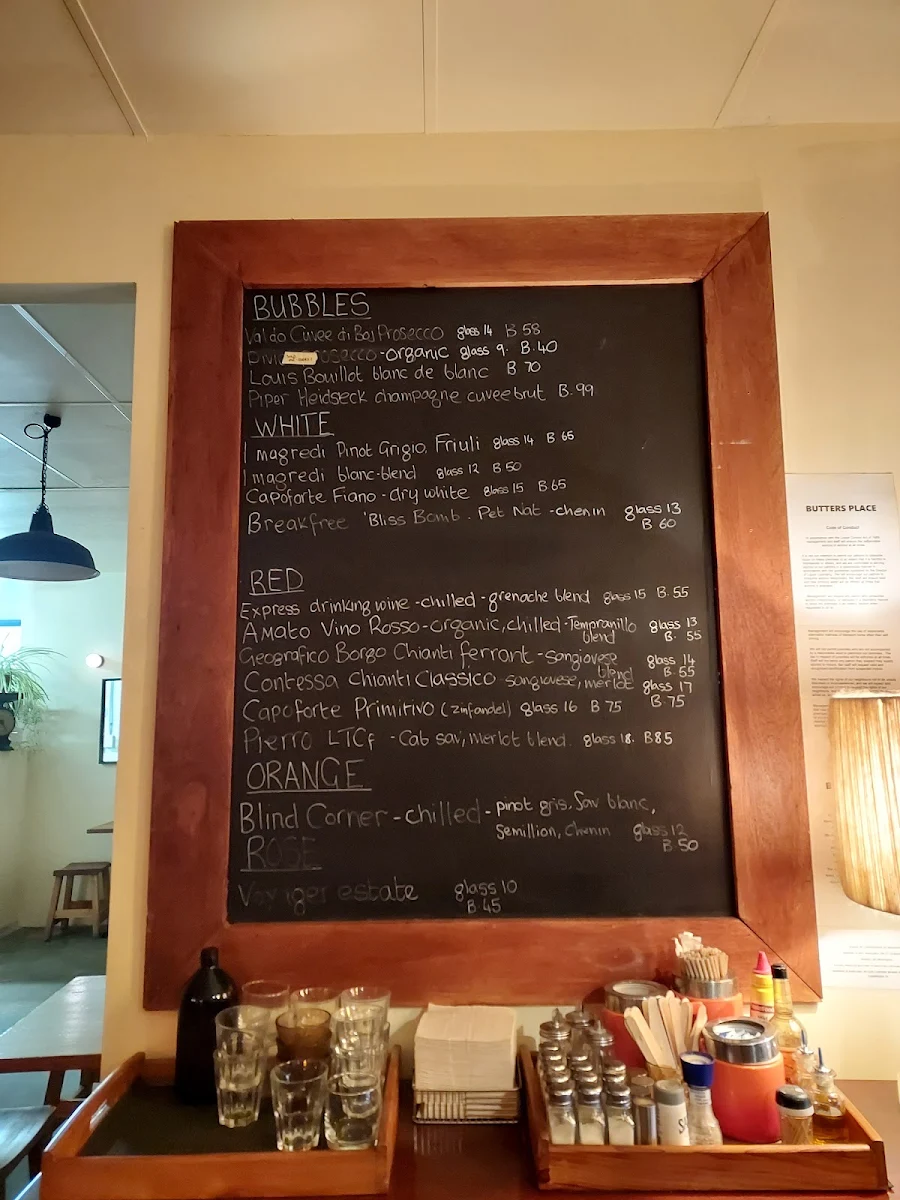 BUBBLES
Valdo Cuvee di Boj Prosecco glass 14 B 58
-organic glass 9. B.40
Louis Bouillot blanc de blanc B 70
Piper Heidseck champagne cuvee brut B.99
WHITE
I magredi Pinot Grigio, Friuli glass 14 B 65
I magredi blanc-blend glass 12 B 50
Capoforte Fiano - dry white glass 15 B 65
Breakfree 'Bliss Bomb. Pet Nat - chenin glass 13
B 60
RED
Express drinking wine - chilled - grenache blend glass 15 B.55
Amato Vino Rosso-organic, chilled-Tempranillo glass 13
blend B. 55
Geografico Borgo Chianti ferrant - sangiovese glass 14
blend B.55
Contessa Chianti Classico sangiovese, merlot glass 17
B 75
Capoforte Primitivo (zinfandel) glass 16 B 75
Pierro LTCf - Cab sav, merlot blend. glass 18. B85
ORANGE
Blind Corner - chilled - pinot gris, Sav blanc,
Semillion, Chenin glass 12
B 50
ROSE
Voyager estate glass 10
B 45
BUTTERS PLACE
Code of Conduct